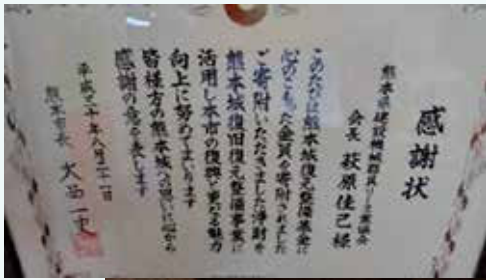 感謝状
熊本県建設機械器具リース業協会
会長 萩原佳己様
このたびは熊本城復元整備基金に
心のこもった金員を寄附されました
ご寄附いただきました浄財を
熊本城復旧復元整備事業に
活用し本市の復興と更なる魅力
向上に努めてまいります
皆様方の熊本城への思いに心から
感謝の意を表します
平成三十年八月二十一日
熊本市長 大西一史